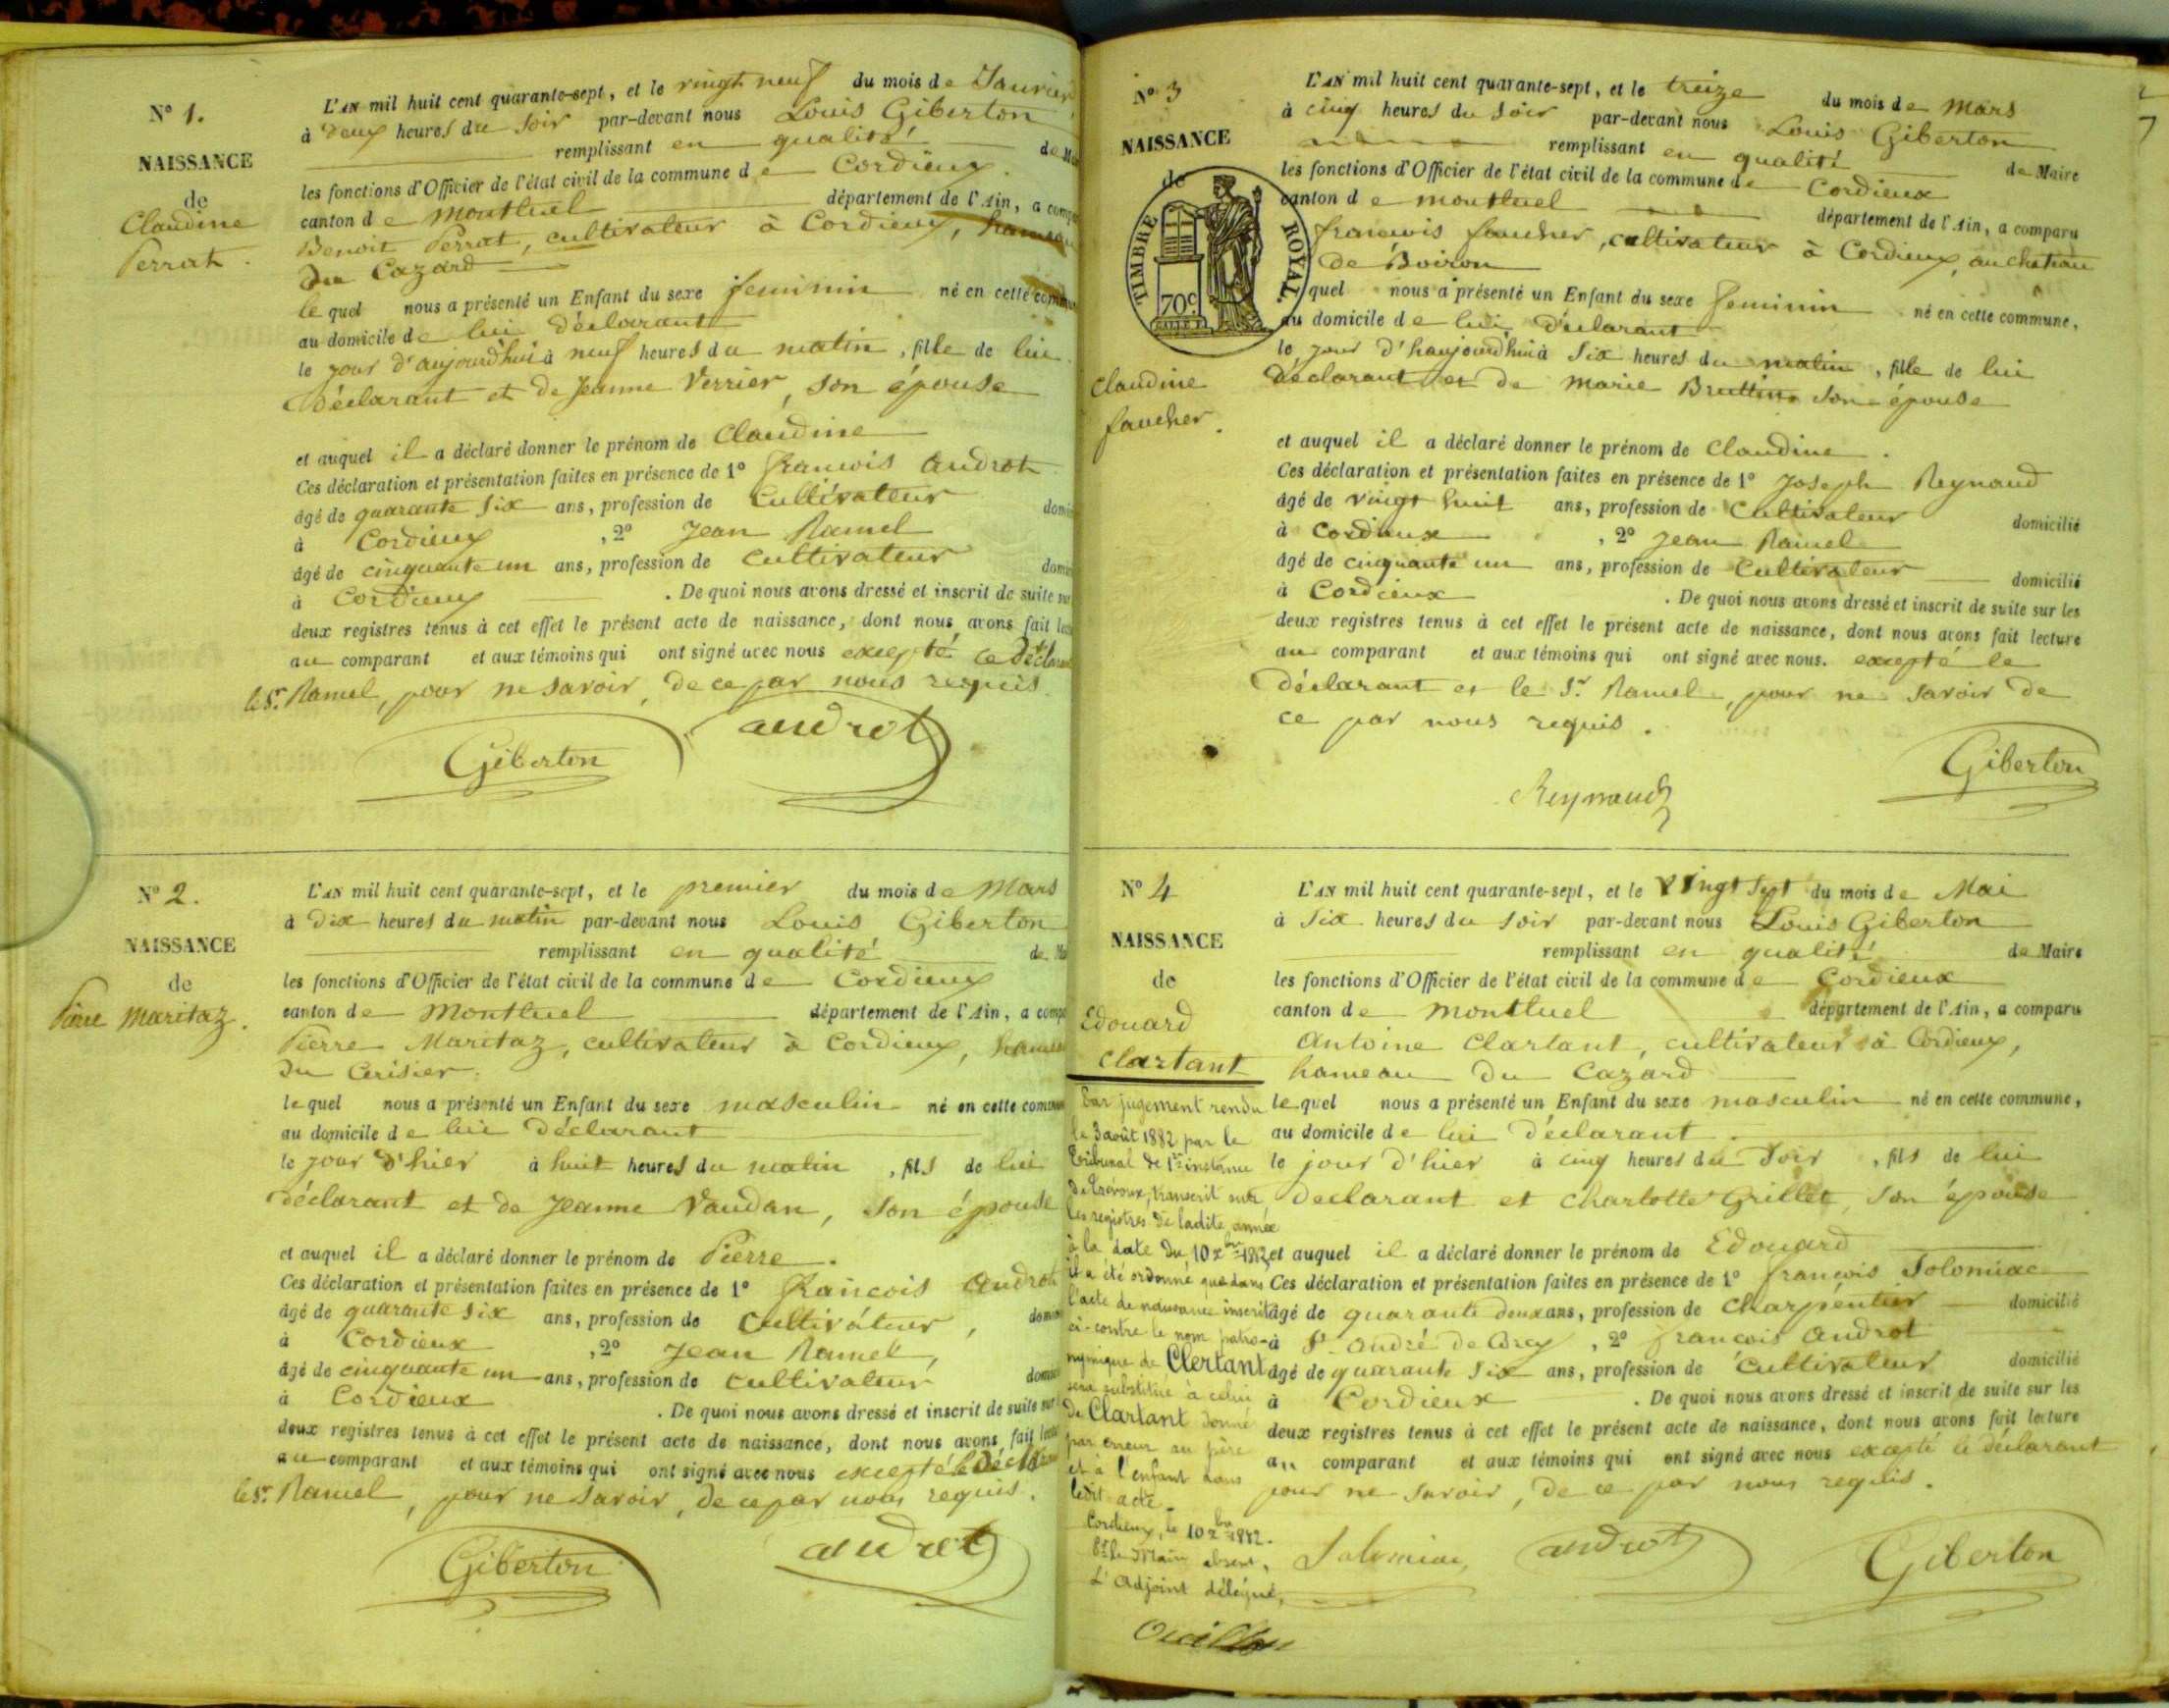 N° 1.
NAISSANCE
de
Claudine
Perrat.
L'AN mil huit cent quarante-sept, et le vingt neuf du mois de Janvier
à deux heures du soir par-devant nous Louis Giberton
remplissant en qualité de
les fonctions d'Officier de l'état civil de la commune de Cordieux.
canton de Montluel département de l'Ain, a
Benoit Perrat, cultivateur à Cordieux, hameau
du Cazard
lequel nous a présenté un Enfant du sexe feminin né en cette
au domicile de lui déclarant
le jour d'aujourd'hui à neuf heures du matin, fille de lui
Déclarant et de Jeanne Verrier, son épouse
et auquel il a déclaré donner le prénom de Claudine
Ces déclaration et présentation faites en présence de 1° francois Androt
âgé de quarante six ans, profession de Cultivateur
à Cordieux, 2° Jean Ramel
âgé de cinquante un ans, profession de Cultivateur
à Cordieux. De quoi nous avons dressé et inscrit de suite sur
deux registres tenus à cet effet le présent acte de naissance, dont nous avons fait
au comparant et aux témoins qui ont signé avec nous excepté le
le Sr. Ramel, pour ne savoir, de ce par nous requis.
Giberton androt
N° 2.
NAISSANCE
de
Pierre Maritaz.
L'AN mil huit cent quarante-sept, et le premier du mois de Mars
à dix heures du matin par-devant nous Louis Giberton
remplissant en qualité de
les fonctions d'Officier de l'état civil de la commune de Cordieux
canton de Montluel département de l'Ain, a
Pierre Maritaz, cultivateur à Cordieux, hameau
du Cerisier.
lequel nous a présenté un Enfant du sexe masculin né en cette
au domicile de lui Déclarant
le jour d'hier à huit heures du matin, fils de lui
déclarant et de Jeanne Vaudan, son épouse
et auquel il a déclaré donner le prénom de Pierre.
Ces déclaration et présentation faites en présence de 1° francois Androt
âgé de quarante six ans, profession de Cultivateur,
à Cordieux, 2° Jean Ramel,
âgé de cinquante un ans, profession de cultivateur
à Cordieux. De quoi nous avons dressé et inscrit de suite sur
deux registres tenus à cet effet le présent acte de naissance, dont nous avons fait
au comparant et aux témoins qui ont signé avec nous excepté le
le Sr. Ramel, pour ne savoir, de ce par nous requis.
Giberton androt
N° 3
NAISSANCE
de
TIMBRE ROYAL
70c
Claudine
faucher.
L'AN mil huit cent quarante-sept, et le treize du mois de Mars
à cinq heures du soir par-devant nous Louis Giberton
remplissant en qualité de Maire
les fonctions d'Officier de l'état civil de la commune de Cordieux
canton de montluel département de l'Ain, a comparu
francois faucher, cultivateur à Cordieux, au chateau
de Boiron
quel nous a présenté un Enfant du sexe feminin né en cette commune,
au domicile de lui, déclarant
le jour d'haujourdhui à Six heures du matin, fille de lui
Déclarant et de Marie son épouse
et auquel il a déclaré donner le prénom de Claudine.
Ces déclaration et présentation faites en présence de 1° Joseph Reynaud
âgé de vingt huit ans, profession de Cultivateur domicilié
à Cordieux, 2° Jean Ramel
âgé de cinquante un ans, profession de Cultivateur domicilié
à Cordieux. De quoi nous avons dressé et inscrit de suite sur les
deux registres tenus à cet effet le présent acte de naissance, dont nous avons fait lecture
au comparant et aux témoins qui ont signé avec nous. excepté le
déclarant et le Sr Ramel, pour ne savoir de
ce par nous requis.
Reynaud Giberton
N° 4
NAISSANCE
de
Edouard
Clartant
Par jugement rendu
le 3 août 1882 par le
Tribunal de 1re instance
de Trévoux, transcrit sur
les registres de ladite année
à la date du 10 xbre 1882
il a été ordonné que dans
l'acte de naissance inscrit
ci-contre le nom patro-
nymique de Clertant
sera substitué à celui
de Clartant donné
par erreur au père
et à l'enfant dans
ledit acte.
Cordieux, le 10 xbre 1882.
Pr le Maire absent,
L'Adjoint délégué,
L'AN mil huit cent quarante-sept, et le Vingt Sept du mois de Mai
à Six heures du soir par-devant nous Louis Giberton
remplissant en qualité de Maire
les fonctions d'Officier de l'état civil de la commune de Cordieux
canton de montluel département de l'Ain, a comparu
Antoine Clartant, cultivateur à Cordieux,
hameau du Cazard
lequel nous a présenté un Enfant du sexe masculin né en cette commune,
au domicile de lui déclarant
le jour d'hier à cinq heures du Soir, fils de lui
déclarant et Charlotte Grillet, son épouse
et auquel il a déclaré donner le prénom de Edouard
Ces déclaration et présentation faites en présence de 1° francois Solomiac
âgé de quarante deux ans, profession de Charpentier domicilié
à St. André de Corcy, 2° francois Androt
âgé de quarante Six ans, profession de Cultivateur domicilié
à Cordieux. De quoi nous avons dressé et inscrit de suite sur les
deux registres tenus à cet effet le présent acte de naissance, dont nous avons fait lecture
au comparant et aux témoins qui ont signé avec nous excepté le déclarant
pour ne savoir, de ce par nous requis.
Solomiac androt Giberton